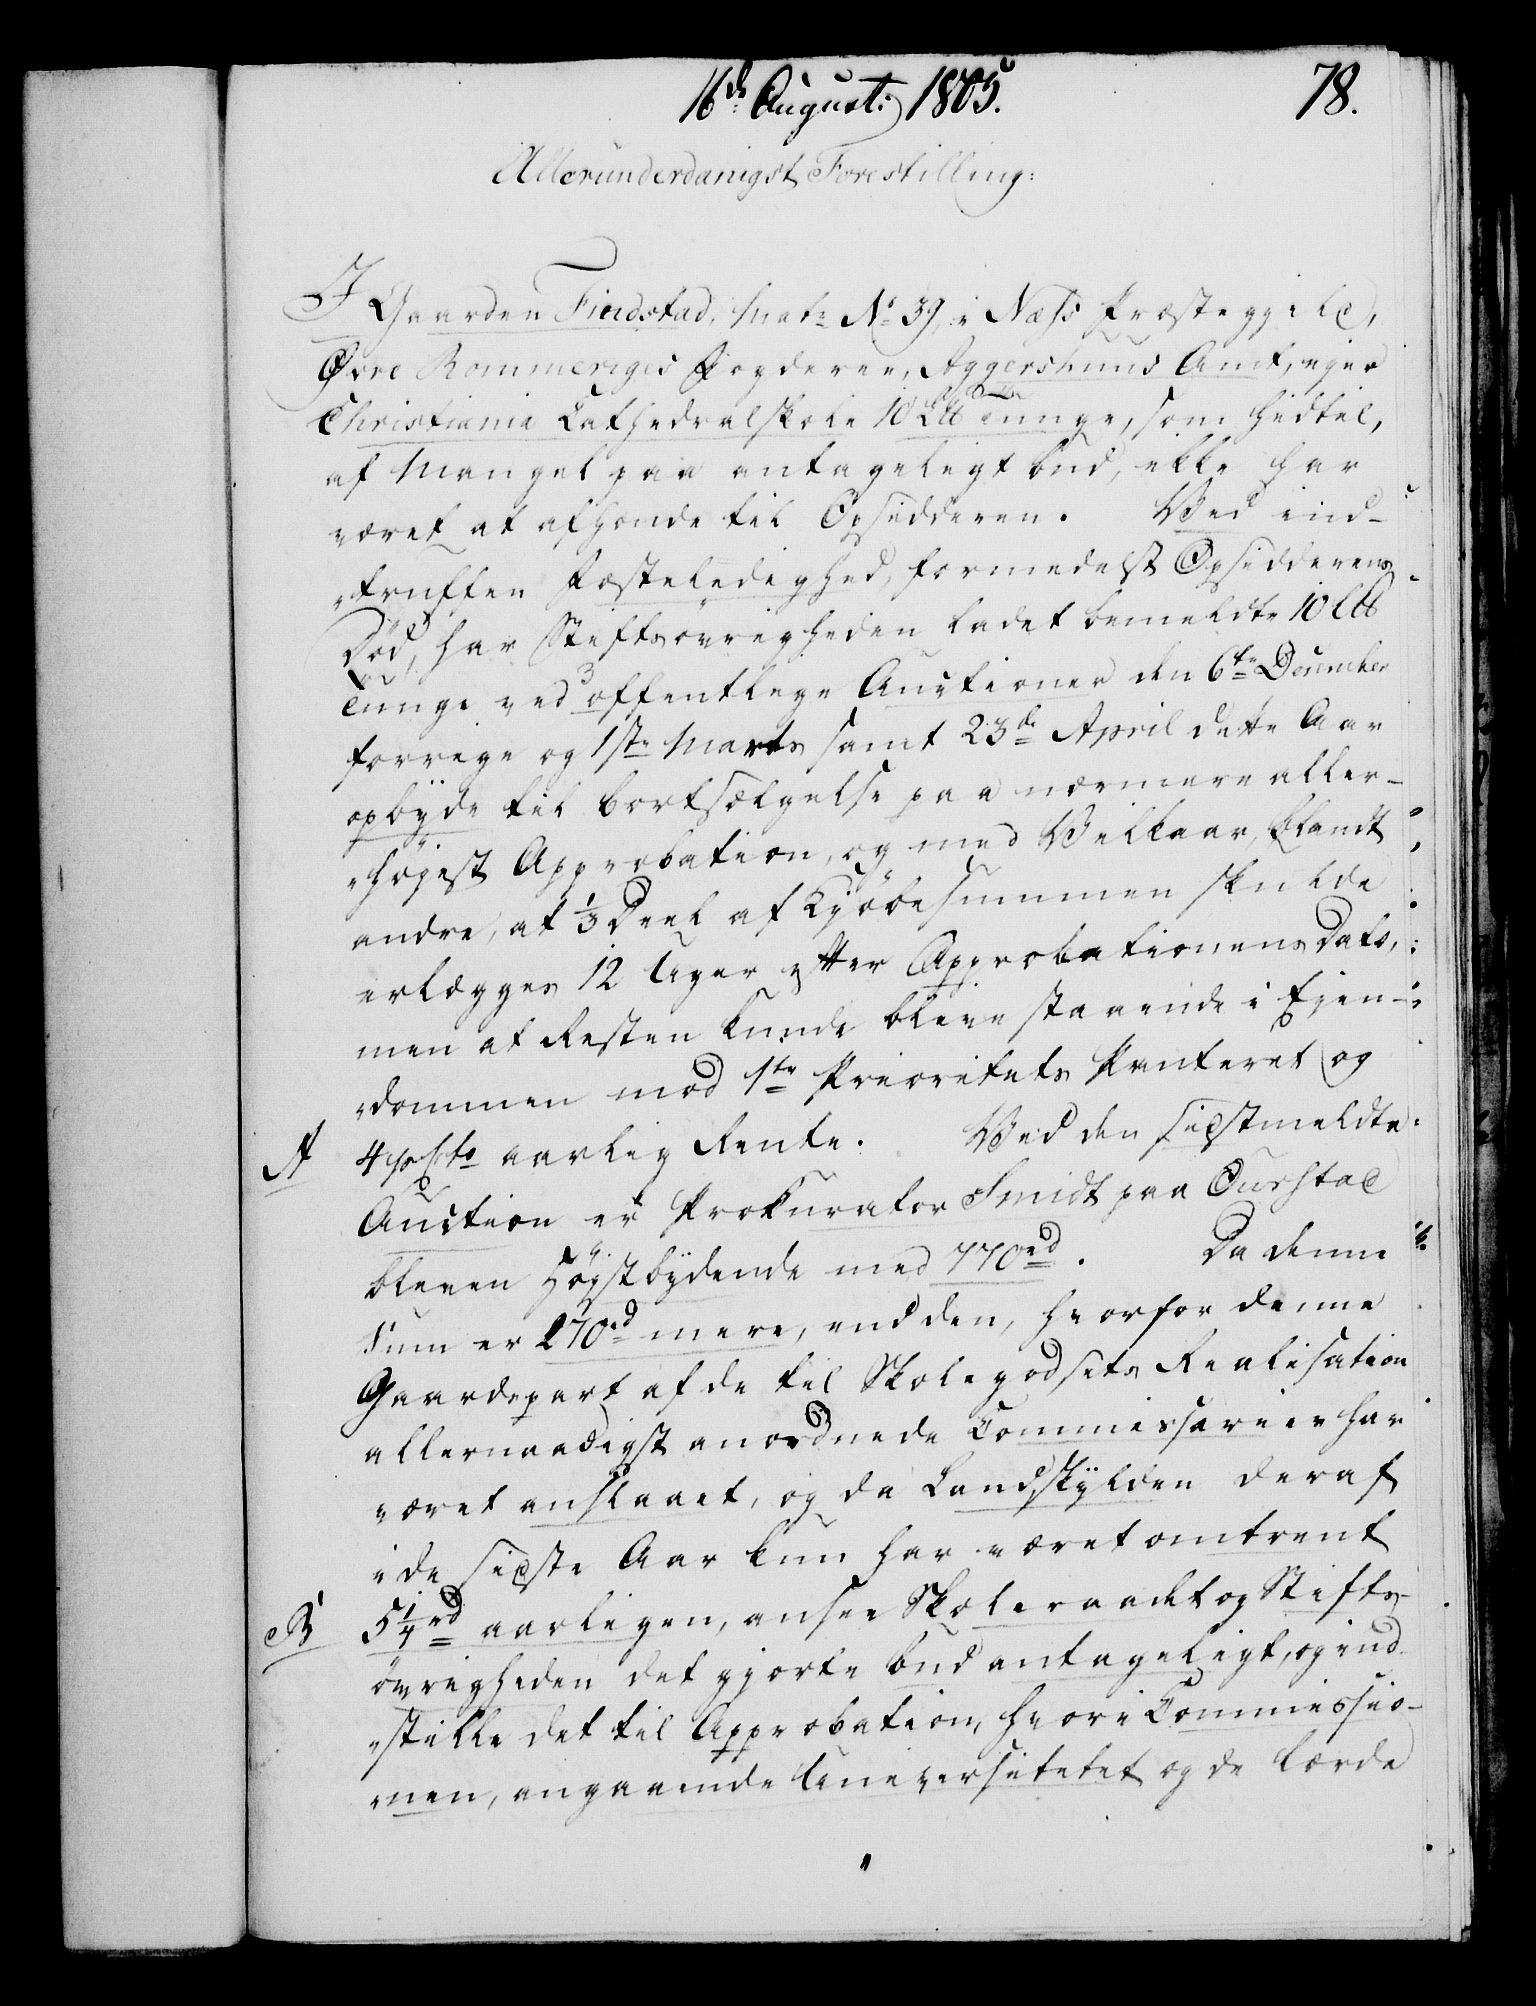 16de August: 1805.
78.
Allerunderdanigst Forestilling:
I Gaarden Findstad, Mat: No 39, i Næss Præstegjeld,
Øvre Rommeriges Fogderie, Aggershuus Amt, ejer
Christiania Cathedralskole 10 L℔ Tunge, som hidtil,
af Mangel paa antageligt bud, ikke har
været at afhænde til Opsidderen. Ved ind-
truffen Fæsteledighed, formedelst Opsidderens
Død, har Stiftsövrigheden ladet bemeldte 10 L℔
Tunge ved 3 offentlige Auctioner den 6te December
forrige og 1ste Marts samt 23de April dette Aar
opbÿde til bortsælgelse paa nærmere aller-
höjest Approbation, og med Vilkaar, blandt
andre, at 1/3 Deel af Kjöbesummen skulde
erlægges 12 Uger efter Approbationens Dato,
men at Resten kunde blive staaende i Ejen-
dommen mod 1ste Prioritets Panteret og
A
4 p Cto aarlig Rente. Ved den sidstmeldte
Auction er Prokurator Smidt paa Ourstad
bleven Högstbÿdende med 770 rd. Da denne
Sum er 270 rd mere, end den, hvorfor denne
Gaardepart af de til Skolegodsets Realisation
allernaadigst anordnede Commissarier har
været anslaaet, og da Landskÿlden deraf
i de sidste Aar kun har været omtrent
B
5 1/4 rd aarligen, ansee Skoleraadet og Stifts-
övrigheden det gjorte bud antageligt, og ind-
stille det til Approbation, hvori Commissio-
nen, angaaende Universitetet og de lærde